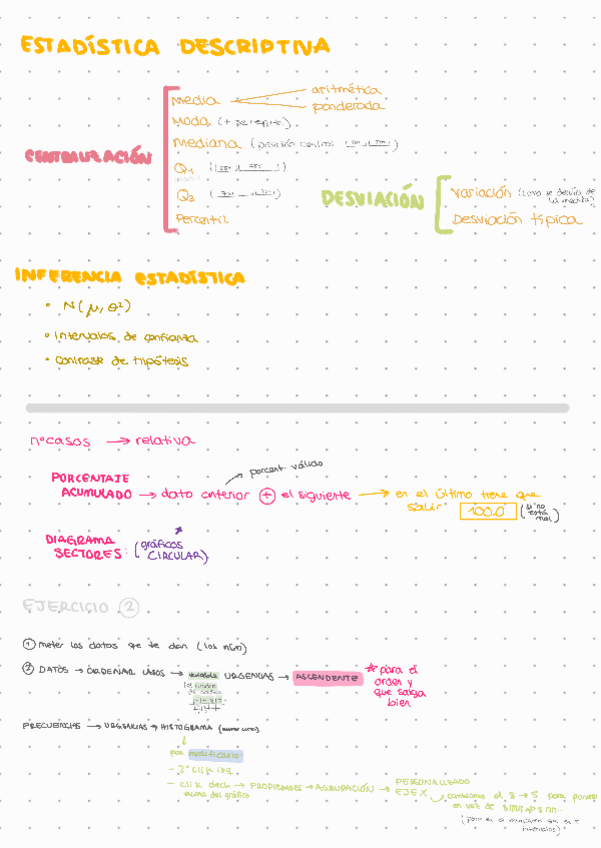 ESTADÍSTICA DESCRIPTIVA
CENTRALIZACIÓN
media
aritmética
ponderada
Moda (+ se repite)
Mediana (posición central
Q1
Q3
Percentil
DESVIACIÓN
Variación
la media)
Desviación típica
INFERENCIA ESTADÍSTICA
• N(μ, σ²)
• intervalos de confianza
• contraste de hipótesis
nº casos → relativa
porcent válido
PORCENTAJE ACUMULADO → dato anterior + el siguiente → en el último tiene que salir 100.0 (si no está mal)
DIAGRAMA SECTORES: (gráficos CIRCULAR)
EJERCICIO 2
1 meter los datos que te dan (los nºs)
2 DATOS → ORDENAR CASOS → variable URGENCIAS → ASCENDENTE
* para el orden y que salga bien
FRECUENCIAS → URGENCIAS → HISTOGRAMA
para modificarlo:
- 2º click izq.
- click dech → PROPIEDADES → AGRUPACIÓN → PERSONALIZADO
encima del gráfico
EJE X
cambiamos el 8 → 5 para
en vez de
intervalos)